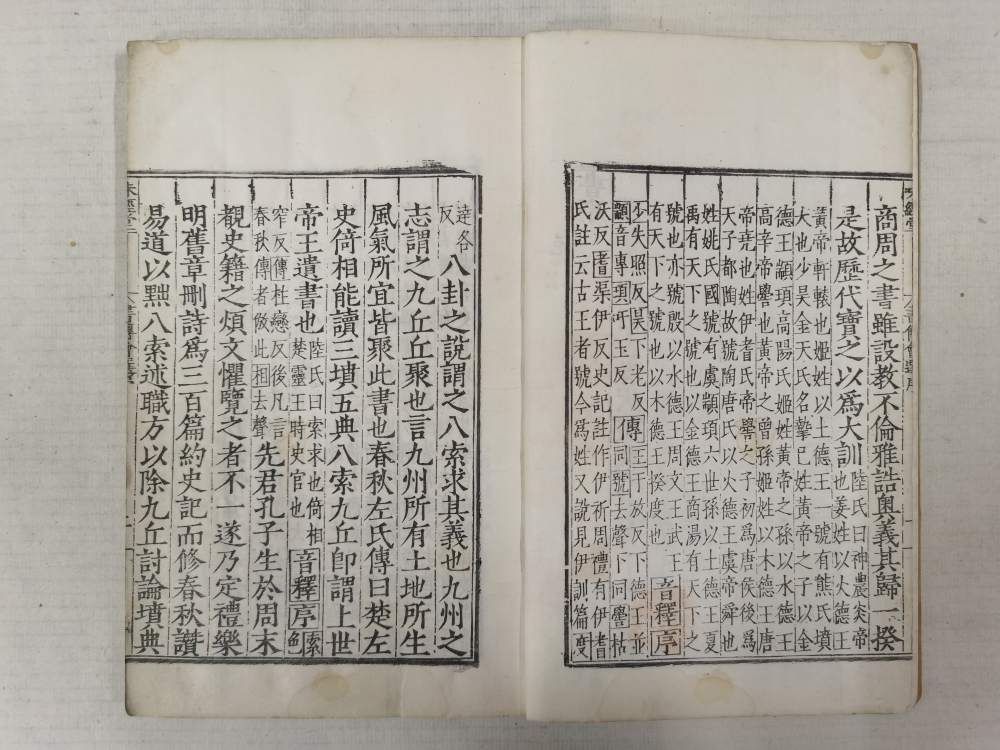 商周之書雖設教不倫雅誥奥義其歸一揆
是故歷代寶之以爲大訓陸氏曰神農炎帝也姜姓以火德王
黄帝軒轅也姬姓以土德王一號有熊氏墳
大也少昊金天氏名摯已姓黄帝之子以金
德王顓頊高陽氏姬姓黄帝之孫以水德王
高辛帝嚳也黄帝之曾孫姬姓以木德王唐
帝堯也姓伊耆氏帝嚳之子初爲唐侯後爲
天子都陶故號陶唐氏以火德王虞帝舜也
姓姚氏國號有虞顓頊六世孫以土德王夏
禹有天下之號也以金德王商湯有天下之
號也亦號殷以水德王周文王武王
有天下之號也以木德王揆度也音釋序
少失照反昊下老反
顓音專頊吁玉反傳王于放反下德王並
同號去聲下同嚳枯
沃反耆渠伊反史記註作伊祈周禮有伊耆
氏註云古王者號今爲姓又說見伊訓篇度
達各反八卦之說謂之八索求其義也九州之
志謂之九丘丘聚也言九州所有土地所生
風氣所宜皆聚此書也春秋左氏傳曰楚左
史倚相能讀三墳五典八索九丘即謂上世
帝王遺書也陸氏曰索求也倚相楚靈王時史官也音釋序索色
窄反傳柱戀反後凡言春秋傳者倣此相去聲先君孔子生於周末
覩史籍之煩文懼覽之者不一遂乃定禮樂
明舊章刪詩爲三百篇約史記而修春秋讚
易道以黜八索述職方以除九丘討論墳典